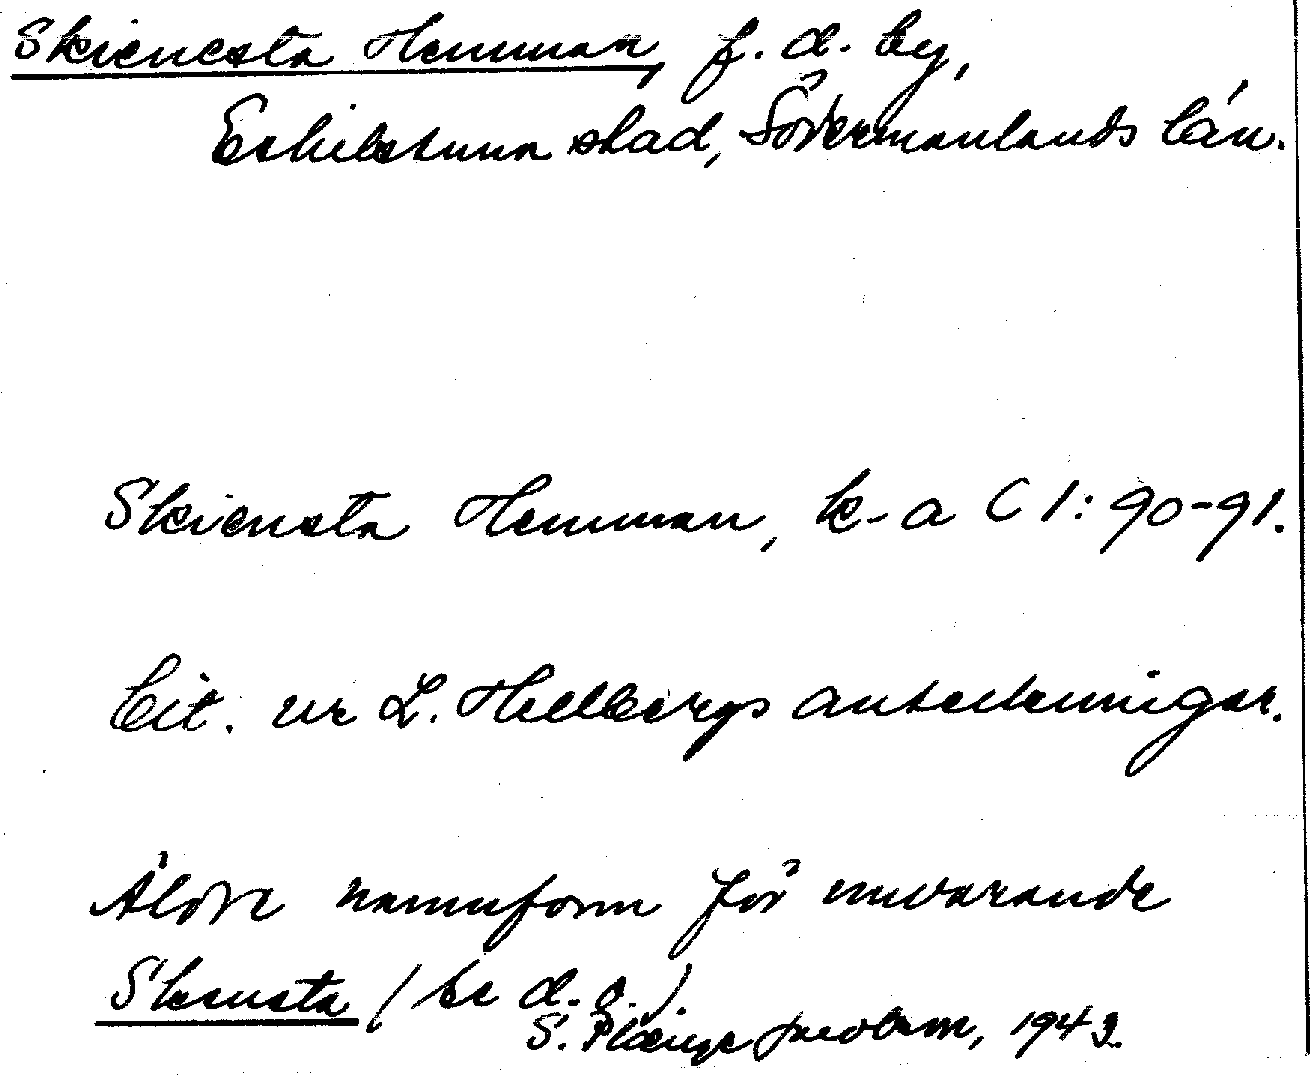 Skienesta Hemman, f. d. by,
Eskilstuna stad, Södermanlands län.
Skiensta Hemman, k-a C I: 90-91.
Cit. ur L. Hellbergs anteckningar.
Äldre namnform för nuvarande
Skensta (se d. o.).
S. 1943.